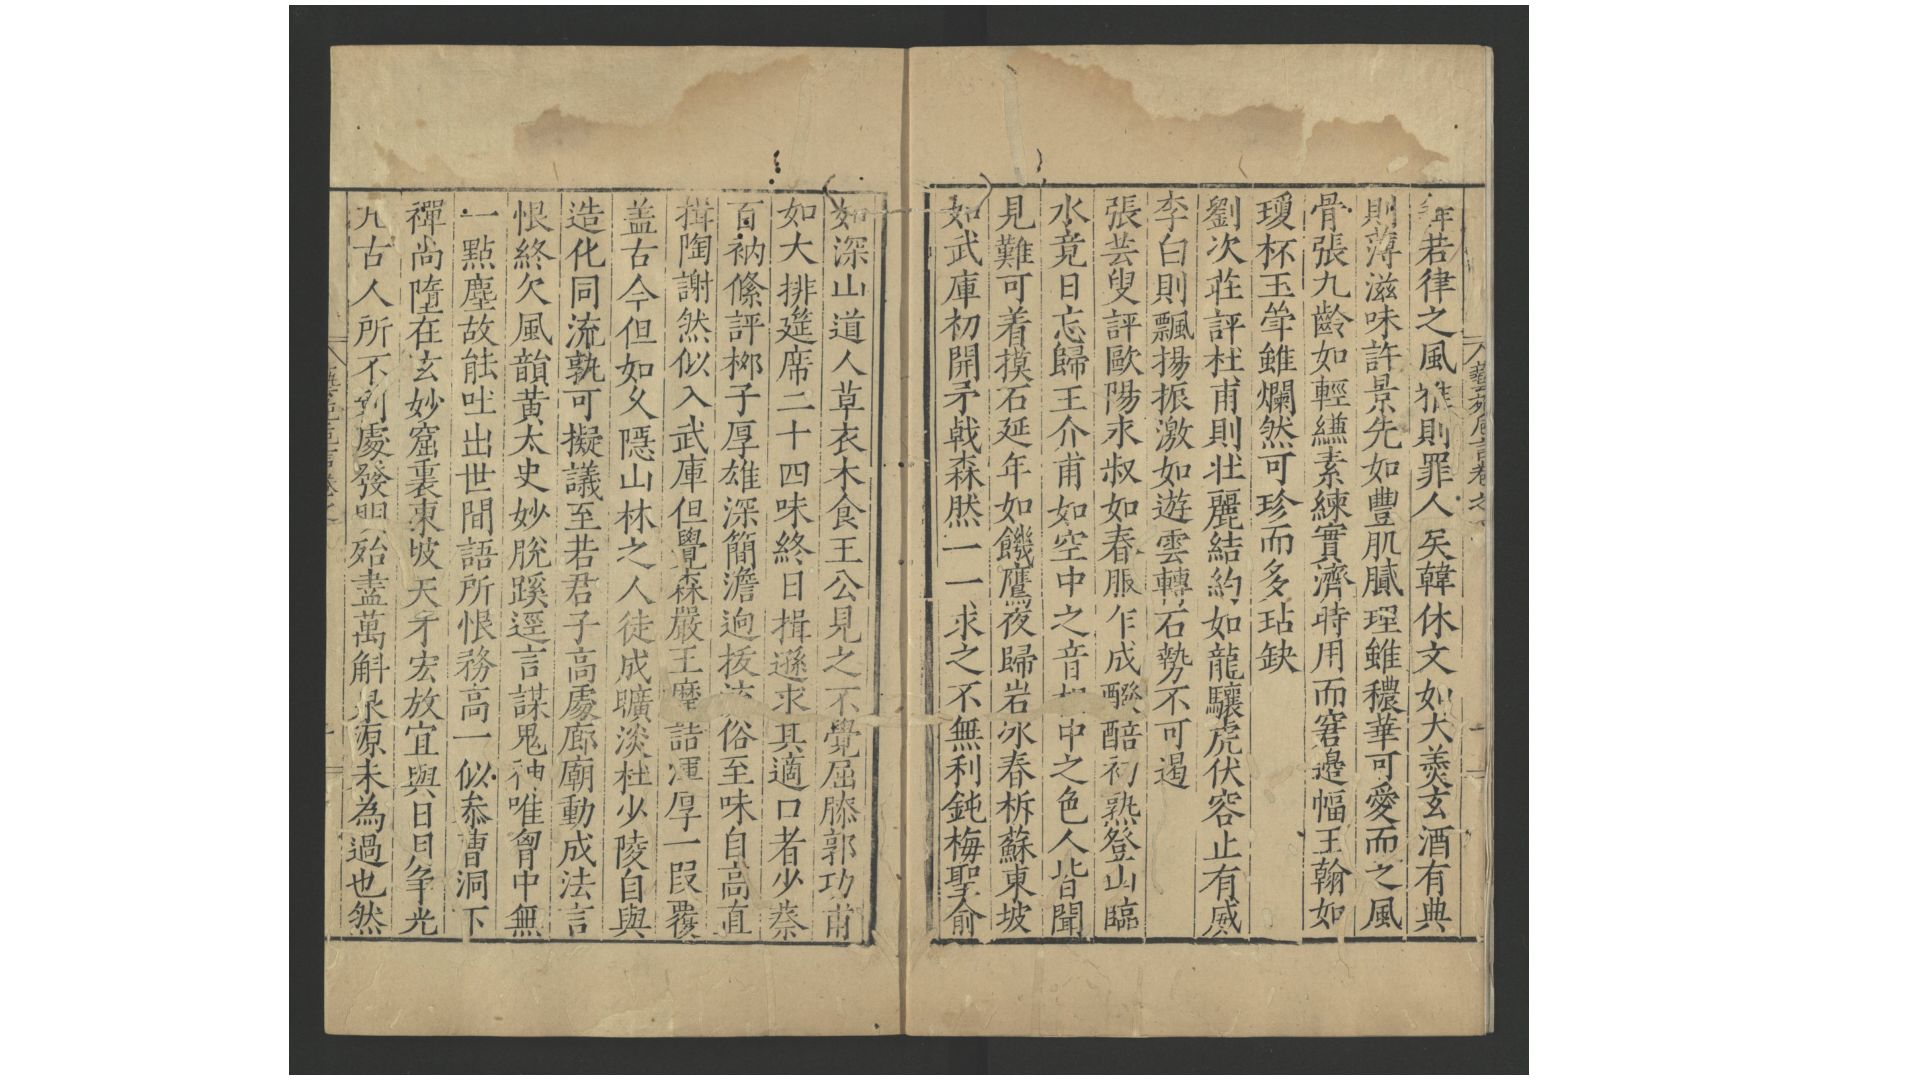 藝苑卮言卷之
年若律之風雅則罪人矣韓休文如大羹玄酒有典
則薄滋味許景先如豐肌膩理雖穠華可愛而乏風
骨張九齡如輕縑素練實濟時用而窘邊幅王翰如
瓊杯玉斝雖爛然可珍而多玷缺
劉次莊評杜甫則壯麗結約如龍驤虎伏容止有威
李白則飄揚振激如遊雲轉石勢不可遏
張芸叟評歐陽永叔如春服乍成醱醅初熟登山臨
水竟日忘歸王介甫如空中之音相中之色人皆聞
見難可着摸石延年如饑鷹夜歸岩冰春柝蘇東坡
如武庫初開矛戟森然一一求之不無利鈍梅聖俞
如深山道人草衣木食王公見之不覺屈膝郭功甫
如大排筵席二十四味終日揖遜求其適口者少蔡
百衲絛評栁子厚雄深簡澹逈拔流俗至味自高直
揖陶謝然似入武庫但覺森嚴王摩詰渾厚一叚覆
盖古今但如久隱山林之人徒成曠淡杜少陵自與
造化同流孰可擬議至若君子高處廊廟動成法言
恨終欠風韻黃太史妙脫蹊逕言謀鬼神唯胷中無
一點塵故能吐出世間語所恨務高一似叅曹洞下
禪尚墮在玄妙窟裏東坡天才宏放宜與日月爭光
凡古人所不到處發明殆盡萬斛泉源未為過也然
藝苑卮言卷之